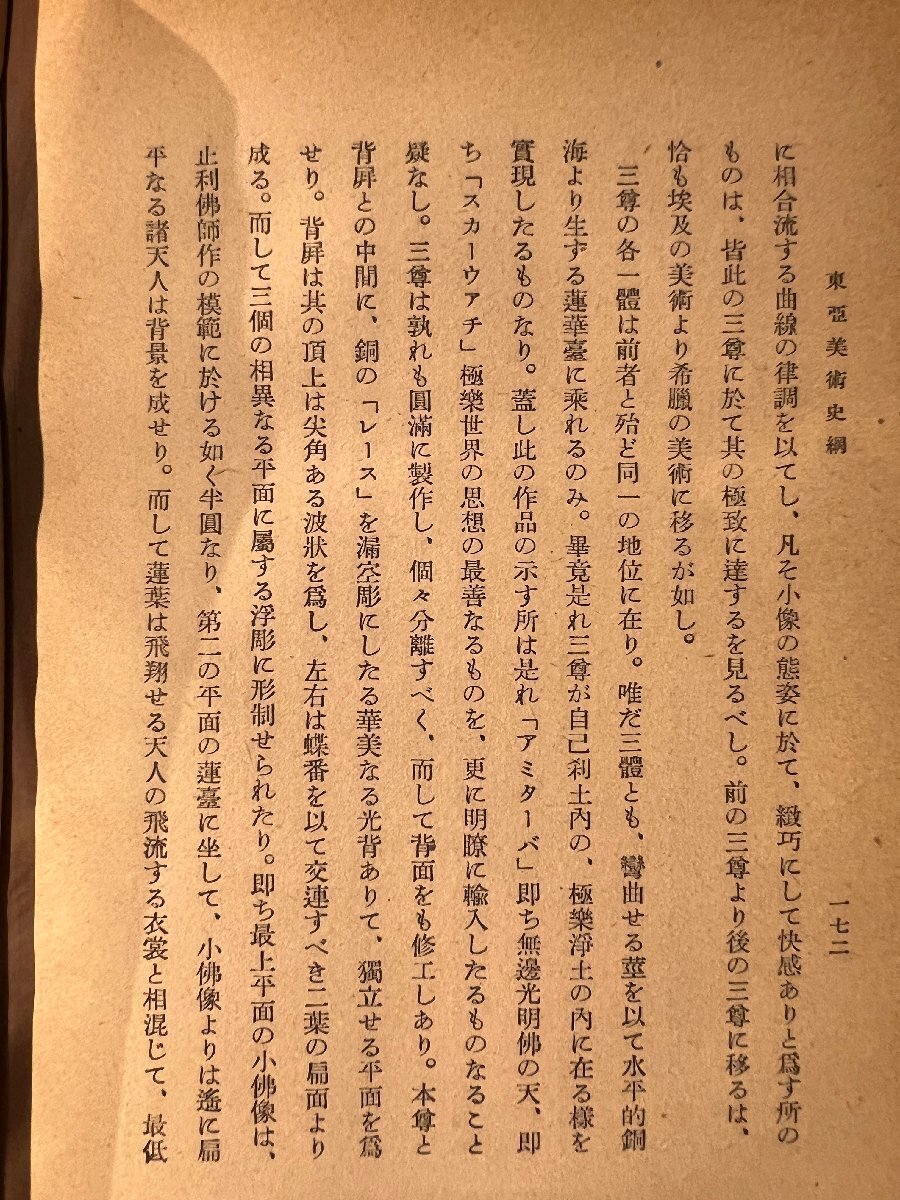 東亞美術史綱
一七二
に相合流する曲線の律調を以てし、凡そ小像の態姿に於て、緻巧にして快感ありと爲す所の
ものは、皆此の三尊に於て其の極致に達するを見るべし。前の三尊より後の三尊に移るは、
恰も埃及の美術より希臘の美術に移るが如し。
三尊の各一體は前者と殆ど同一の地位に在り。唯だ三體とも、彎曲せる莖を以て水平的銅
海より生ずる蓮華臺に乘れるのみ。畢竟是れ三尊が自己利土內の、極樂淨土の內に在る樣を
實現したるものなり。蓋し此の作品の示す所は是れ「アミターバ」卽ち無邊光明佛の天、卽
ち「スカーウァチ」極樂世界の思想の最善なるものを、更に明瞭に輸入したるものなること
疑なし。三尊は孰れも圓滿に製作し、個々分離すべく、而して背面をも修工しあり。本尊と
背屛との中間に、銅の「レース」を漏空彫にしたる華美なる光背ありて、獨立せる平面を爲
せり。背屛は其の頂上は尖角ある波狀を爲し、左右は蝶番を以て交連すべき二葉の扁面より
成る。而して三個の相異なる平面に屬する浮彫に形制せられたり。卽ち最上平面の小佛像は、
止利佛師作の模範に於ける如く半圓なり、第二の平面の蓮臺に坐して、小佛像よりは遙に扁
平なる諸天人は背景を成せり。而して蓮葉は飛翔せる天人の飛流する衣裳と相混じて、最低